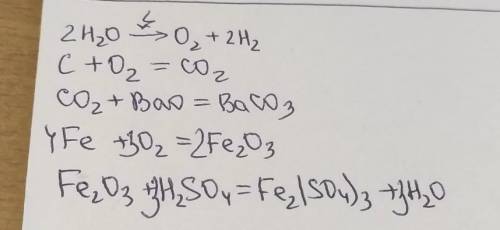 2H₂O ⟶ O₂ + 2H₂
C + O₂ = CO₂
CO₂ + BaO = BaCO₃
4Fe + 3O₂ = 2Fe₂O₃
Fe₂O₃ + 3H₂SO₄ = Fe₂(SO₄)₃ + 3H₂O